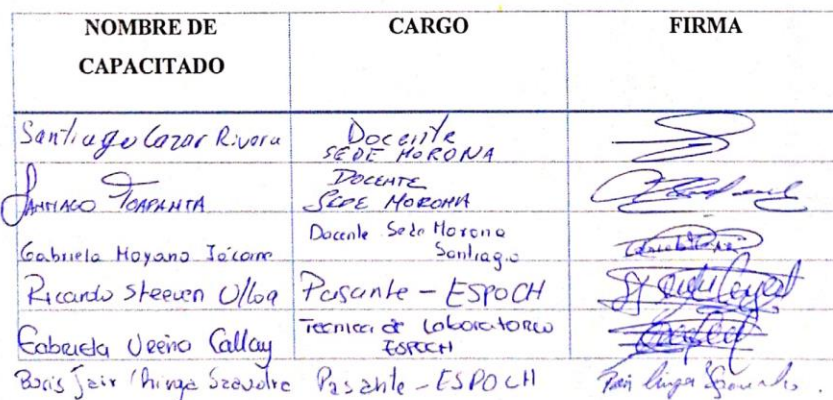 NOMBRE DE CAPACITADO CARGO FIRMA
Santiago Cazar Rivera Docente SEDE MORONA
SANTIAGO TOAPANTA DOCENTE SEDE MORONA
Gabriela Moyano Jácome Docente Sede Morona Santiago
Ricardo Steeven Ulloa Pasante - ESPOCH
Gabriela Ureña Callay Tecnica de Laboratorio ESPOCH
Boris Jair Chinga Pasante - ESPOCH